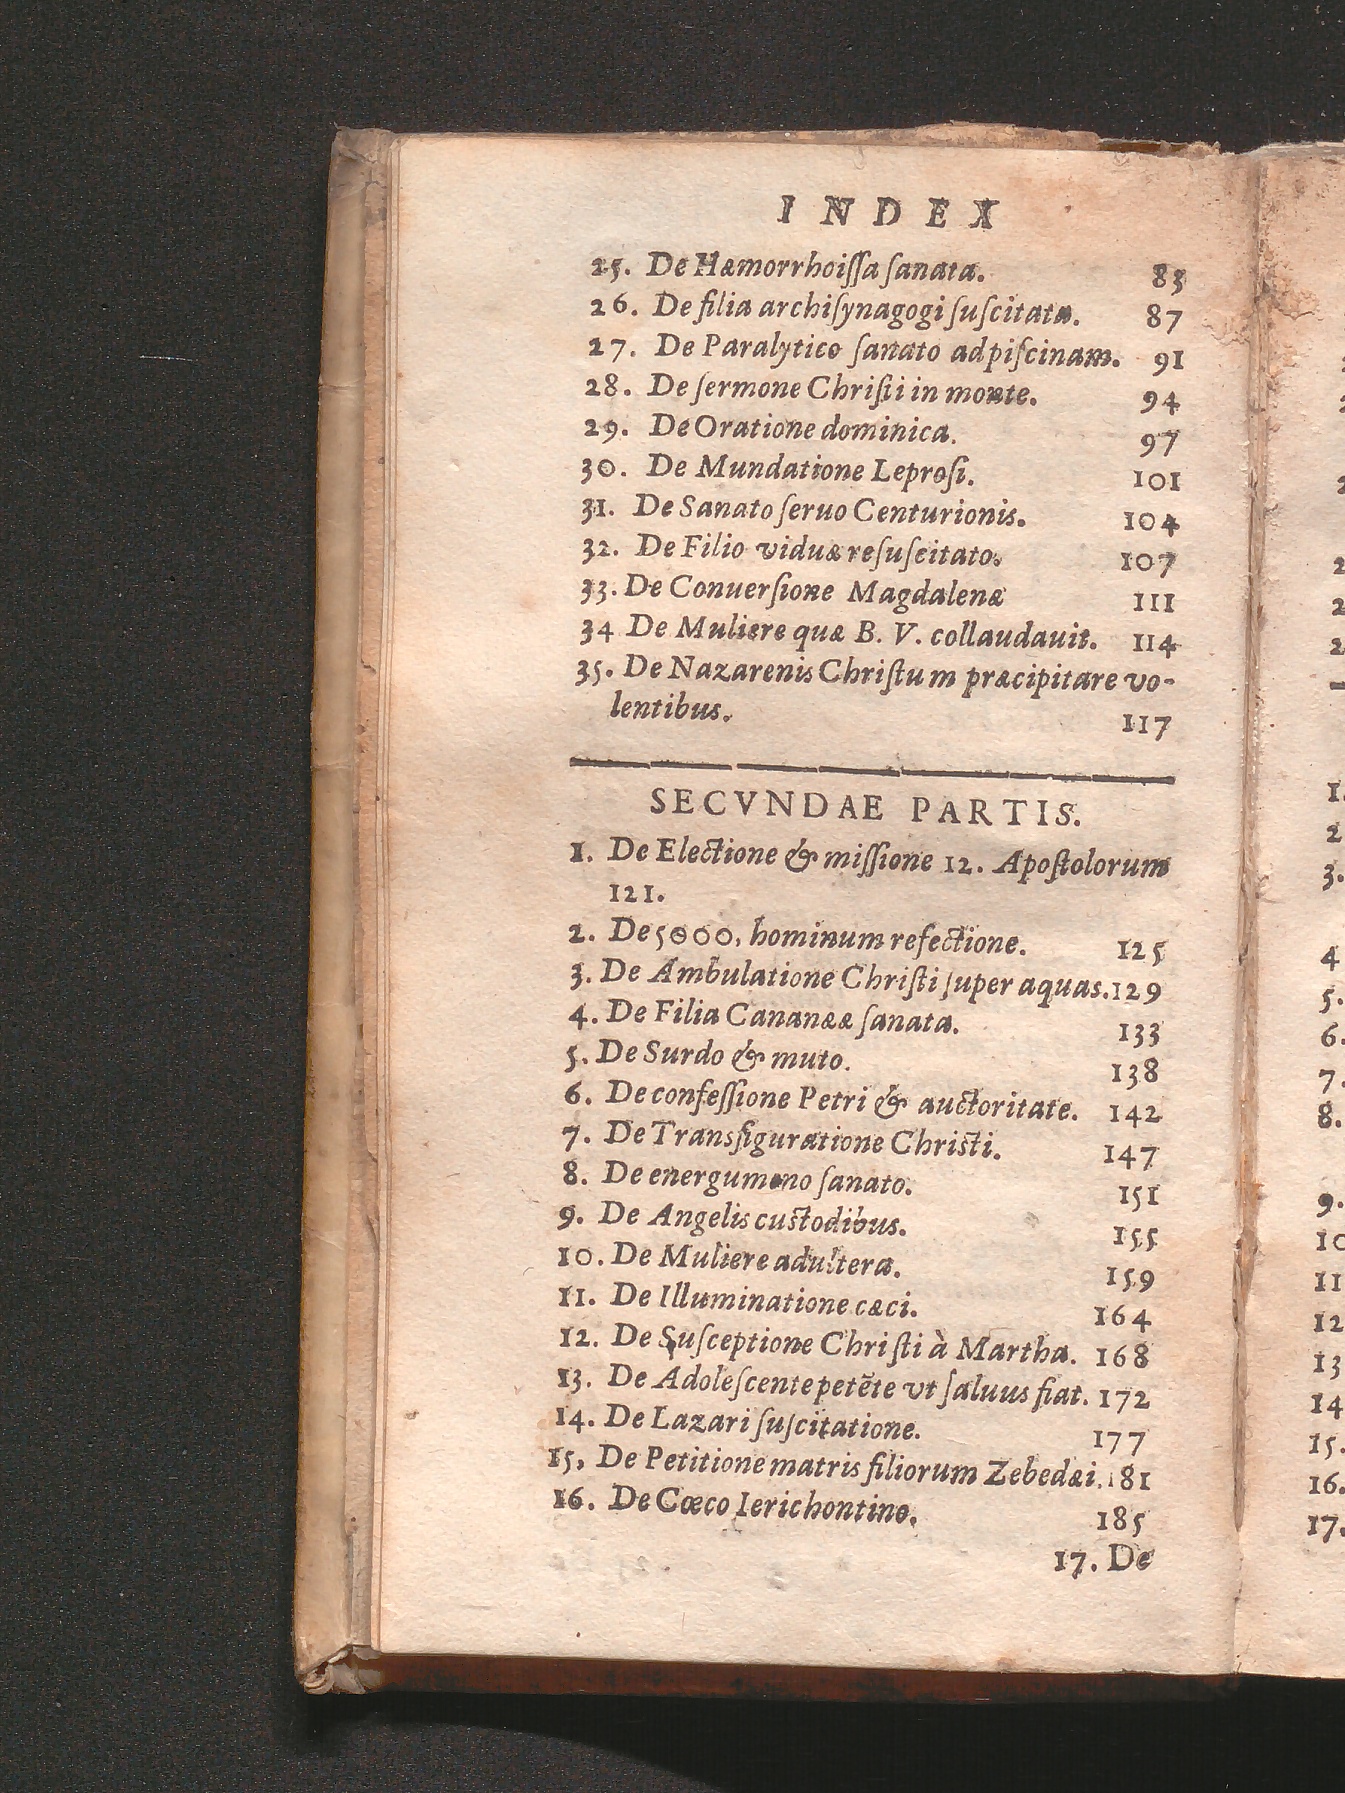 INDEX
25. De Hæmorrhoiſſa ſanata. 83
26. De filia archiſynagogi ſuſcitata. 87
27. De Paralytico ſanato ad piſcinam. 91
28. De ſermone Chriſti in monte. 94
29. De Oratione dominica. 97
30. De Mundatione Leproſi. 101
31. De Sanato ſeruo Centurionis. 104
32. De Filio viduæ reſuſcitato. 107
33. De Conuerſione Magdalenæ 111
34 De Muliere quæ B. V. collaudauit. 114
35. De Nazarenis Chriſtum præcipitare vo-
lentibus. 117
SECVNDAE PARTIS.
1. De Electione & miſſione 12. Apoſtolorum
121.
2. De 5000. hominum refectione. 125
3. De Ambulatione Chriſti ſuper aquas. 129
4. De Filia Cananææ ſanata. 133
5. De Surdo & muto. 138
6. De confeſſione Petri & auctoritate. 142
7. De Transfiguratione Chriſti. 147
8. De energumeno ſanato. 151
9. De Angelis cuſtodibus. 155
10. De Muliere adultera. 159
11. De Illuminatione cæci. 164
12. De Suſceptione Chriſti à Martha. 168
13. De Adoleſcente petẽte vt ſaluus fiat. 172
14. De Lazari ſuſcitatione. 177
15. De Petitione matris filiorum Zebedæi. 181
16. De Cœco Ierichontino. 185
17. De
1.
2
3.
4
5.
6.
7.
8.
9.
10
11
12
13
14
15.
16.
17.